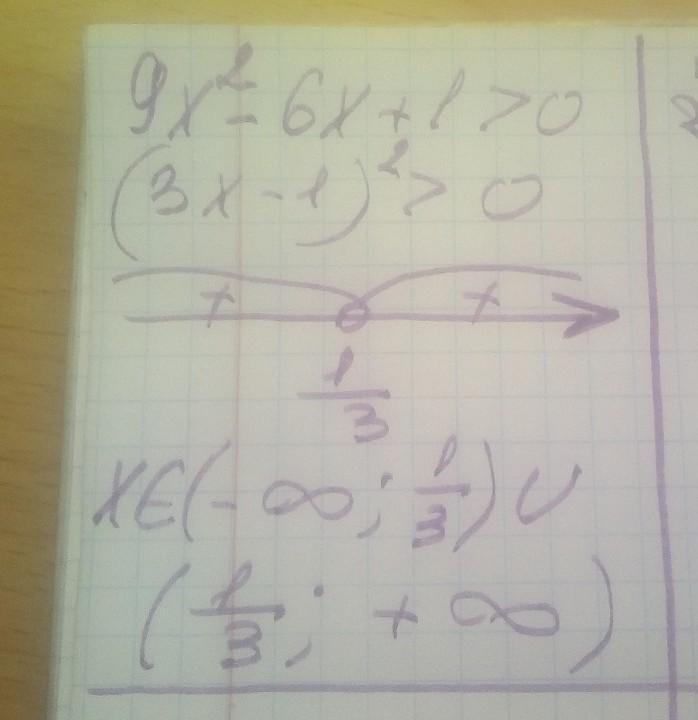 9x² - 6x + 1 > 0
(3x - 1)² > 0
+ +
1/3
x∈(-∞; 1/3) ∪
(1/3; +∞)